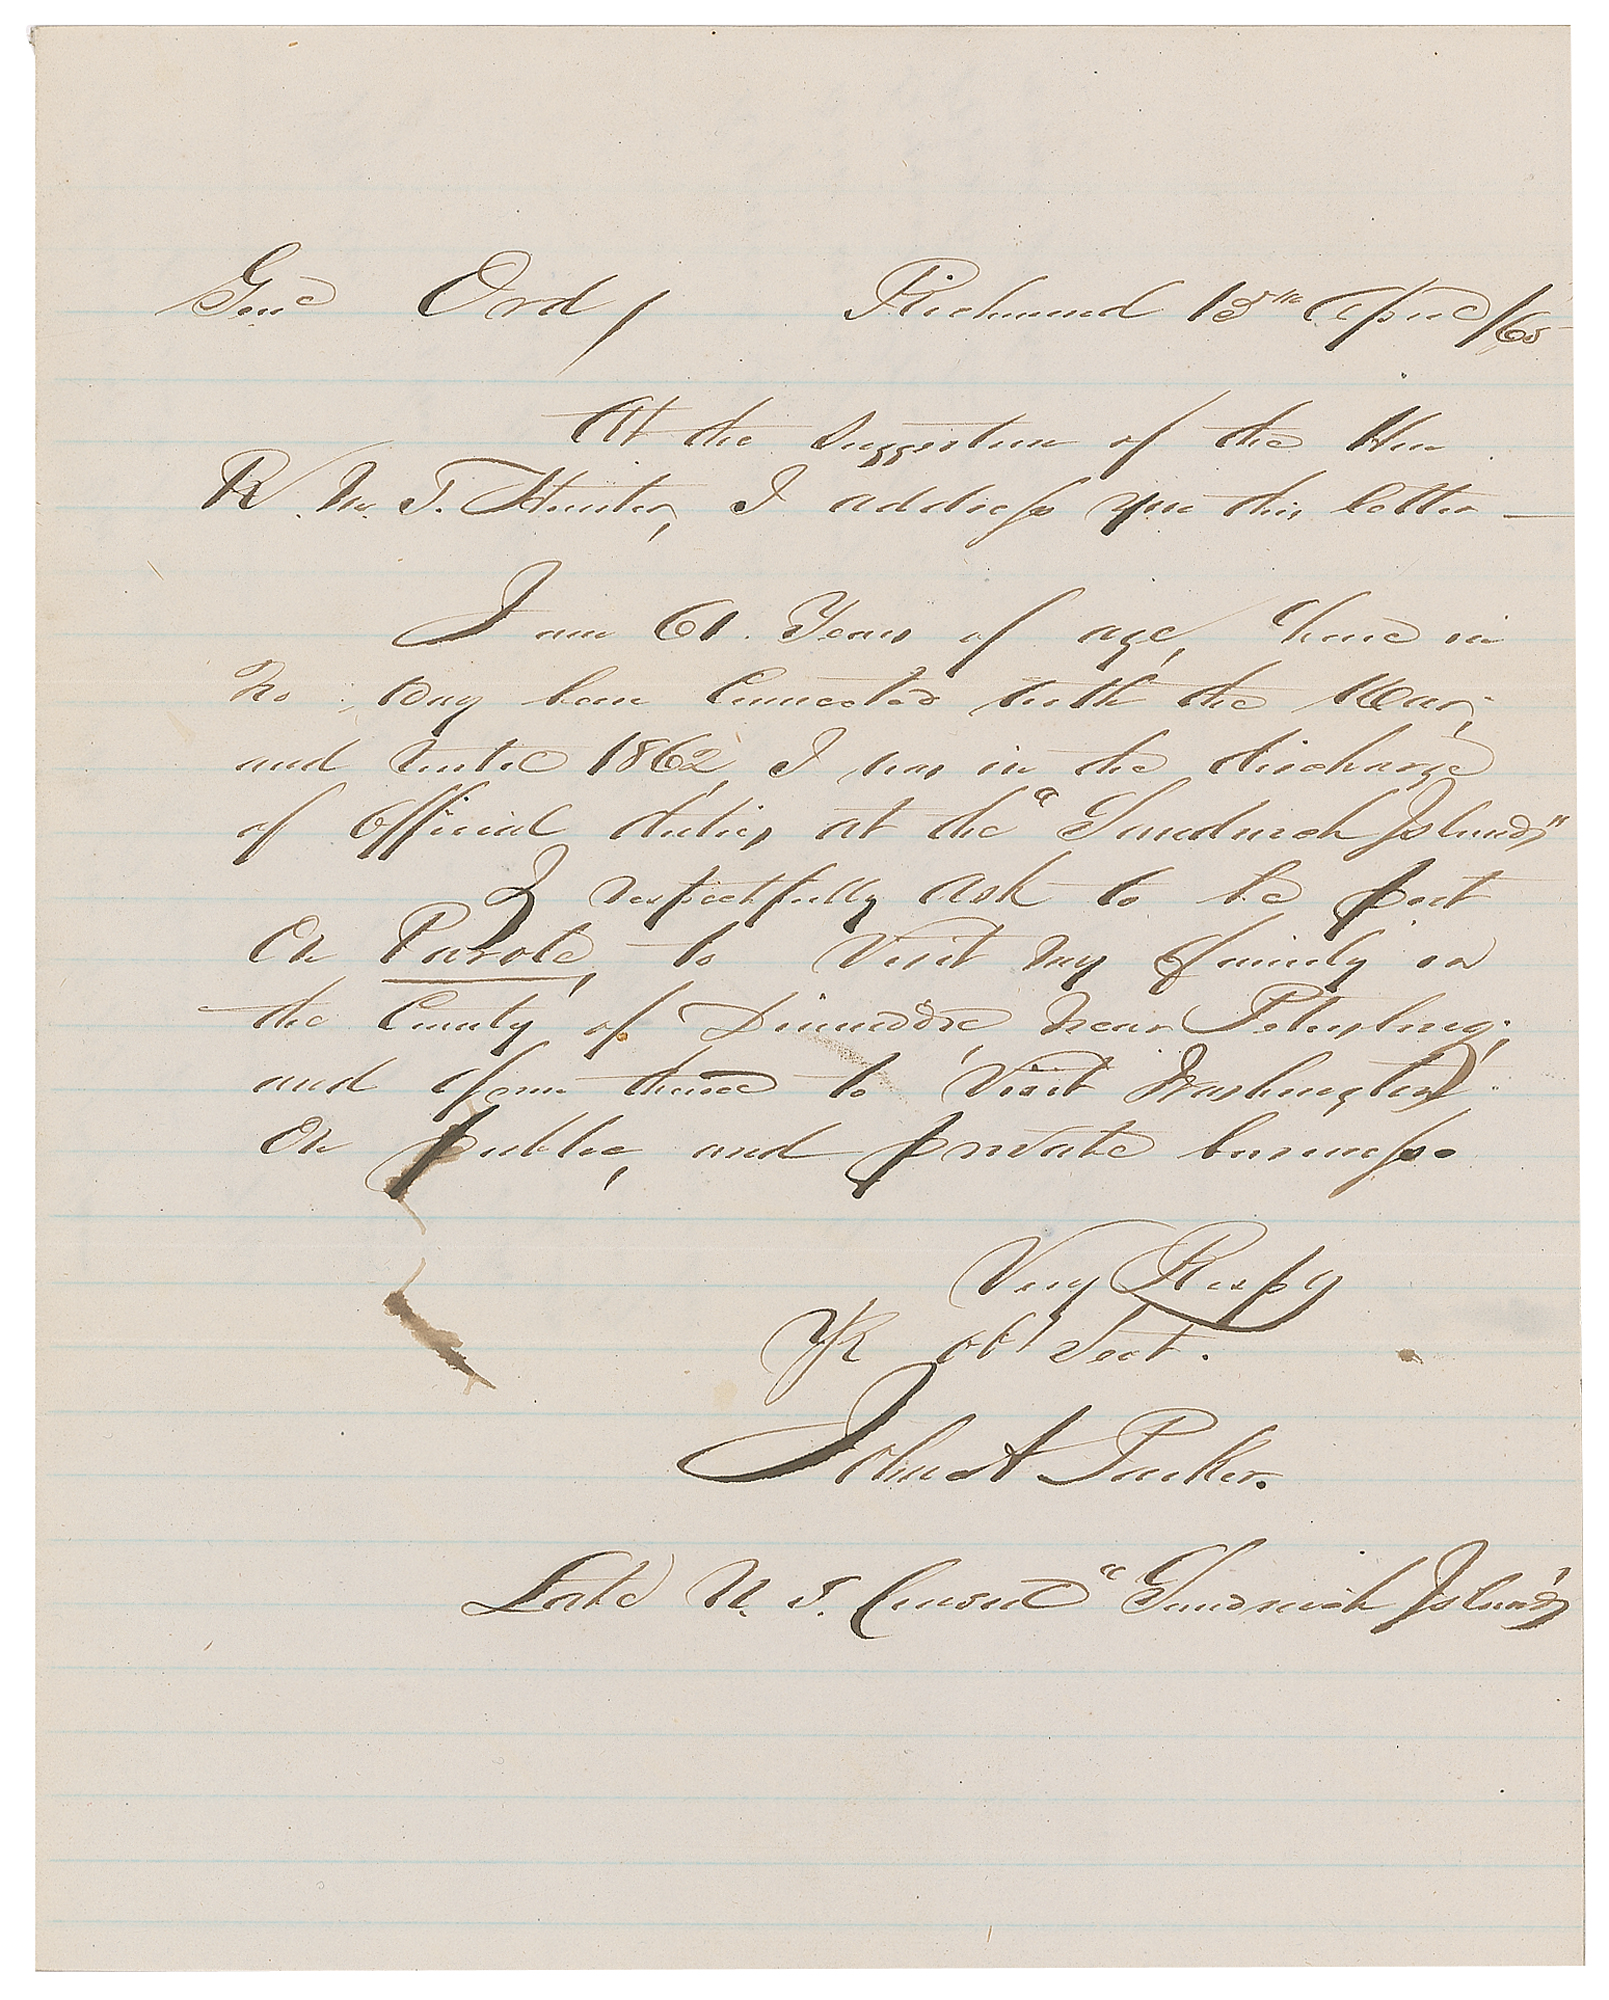 Genl Ord, Richmond 15th April /65
At the Suggestion of the Hon
R. M. T. Hunter, I address you this letter —
I am 61. Years of age, have in
no way been Connected with the War,
and until 1862, I was in the discharge
of Official duties, at the "Sandwich Islands"
I respectfully ask to be put
On Parole, to Visit my family in
the County of Dinwiddie, near Petersburg,
and from thence to Visit Washington
On public, and private business.
Very Respy
Yr obt Sevt.
John A Parker.
Late U. S. Consul "Sandwich Islands